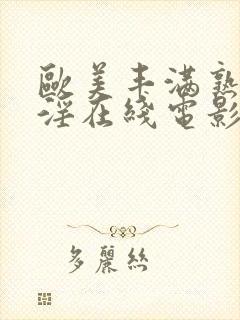 歐美丰滿熟
淫在綫電影
多麗絲